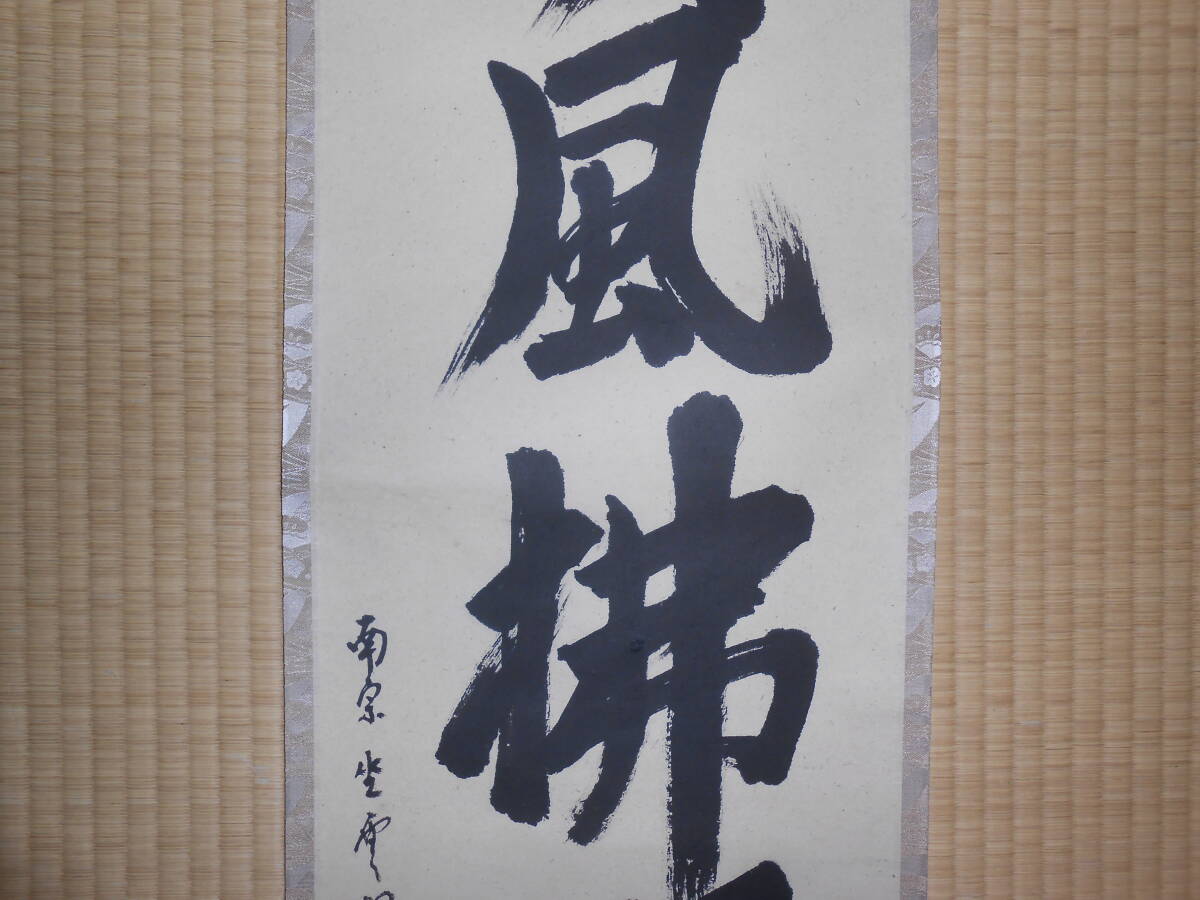 風拂
南宗 坐雲